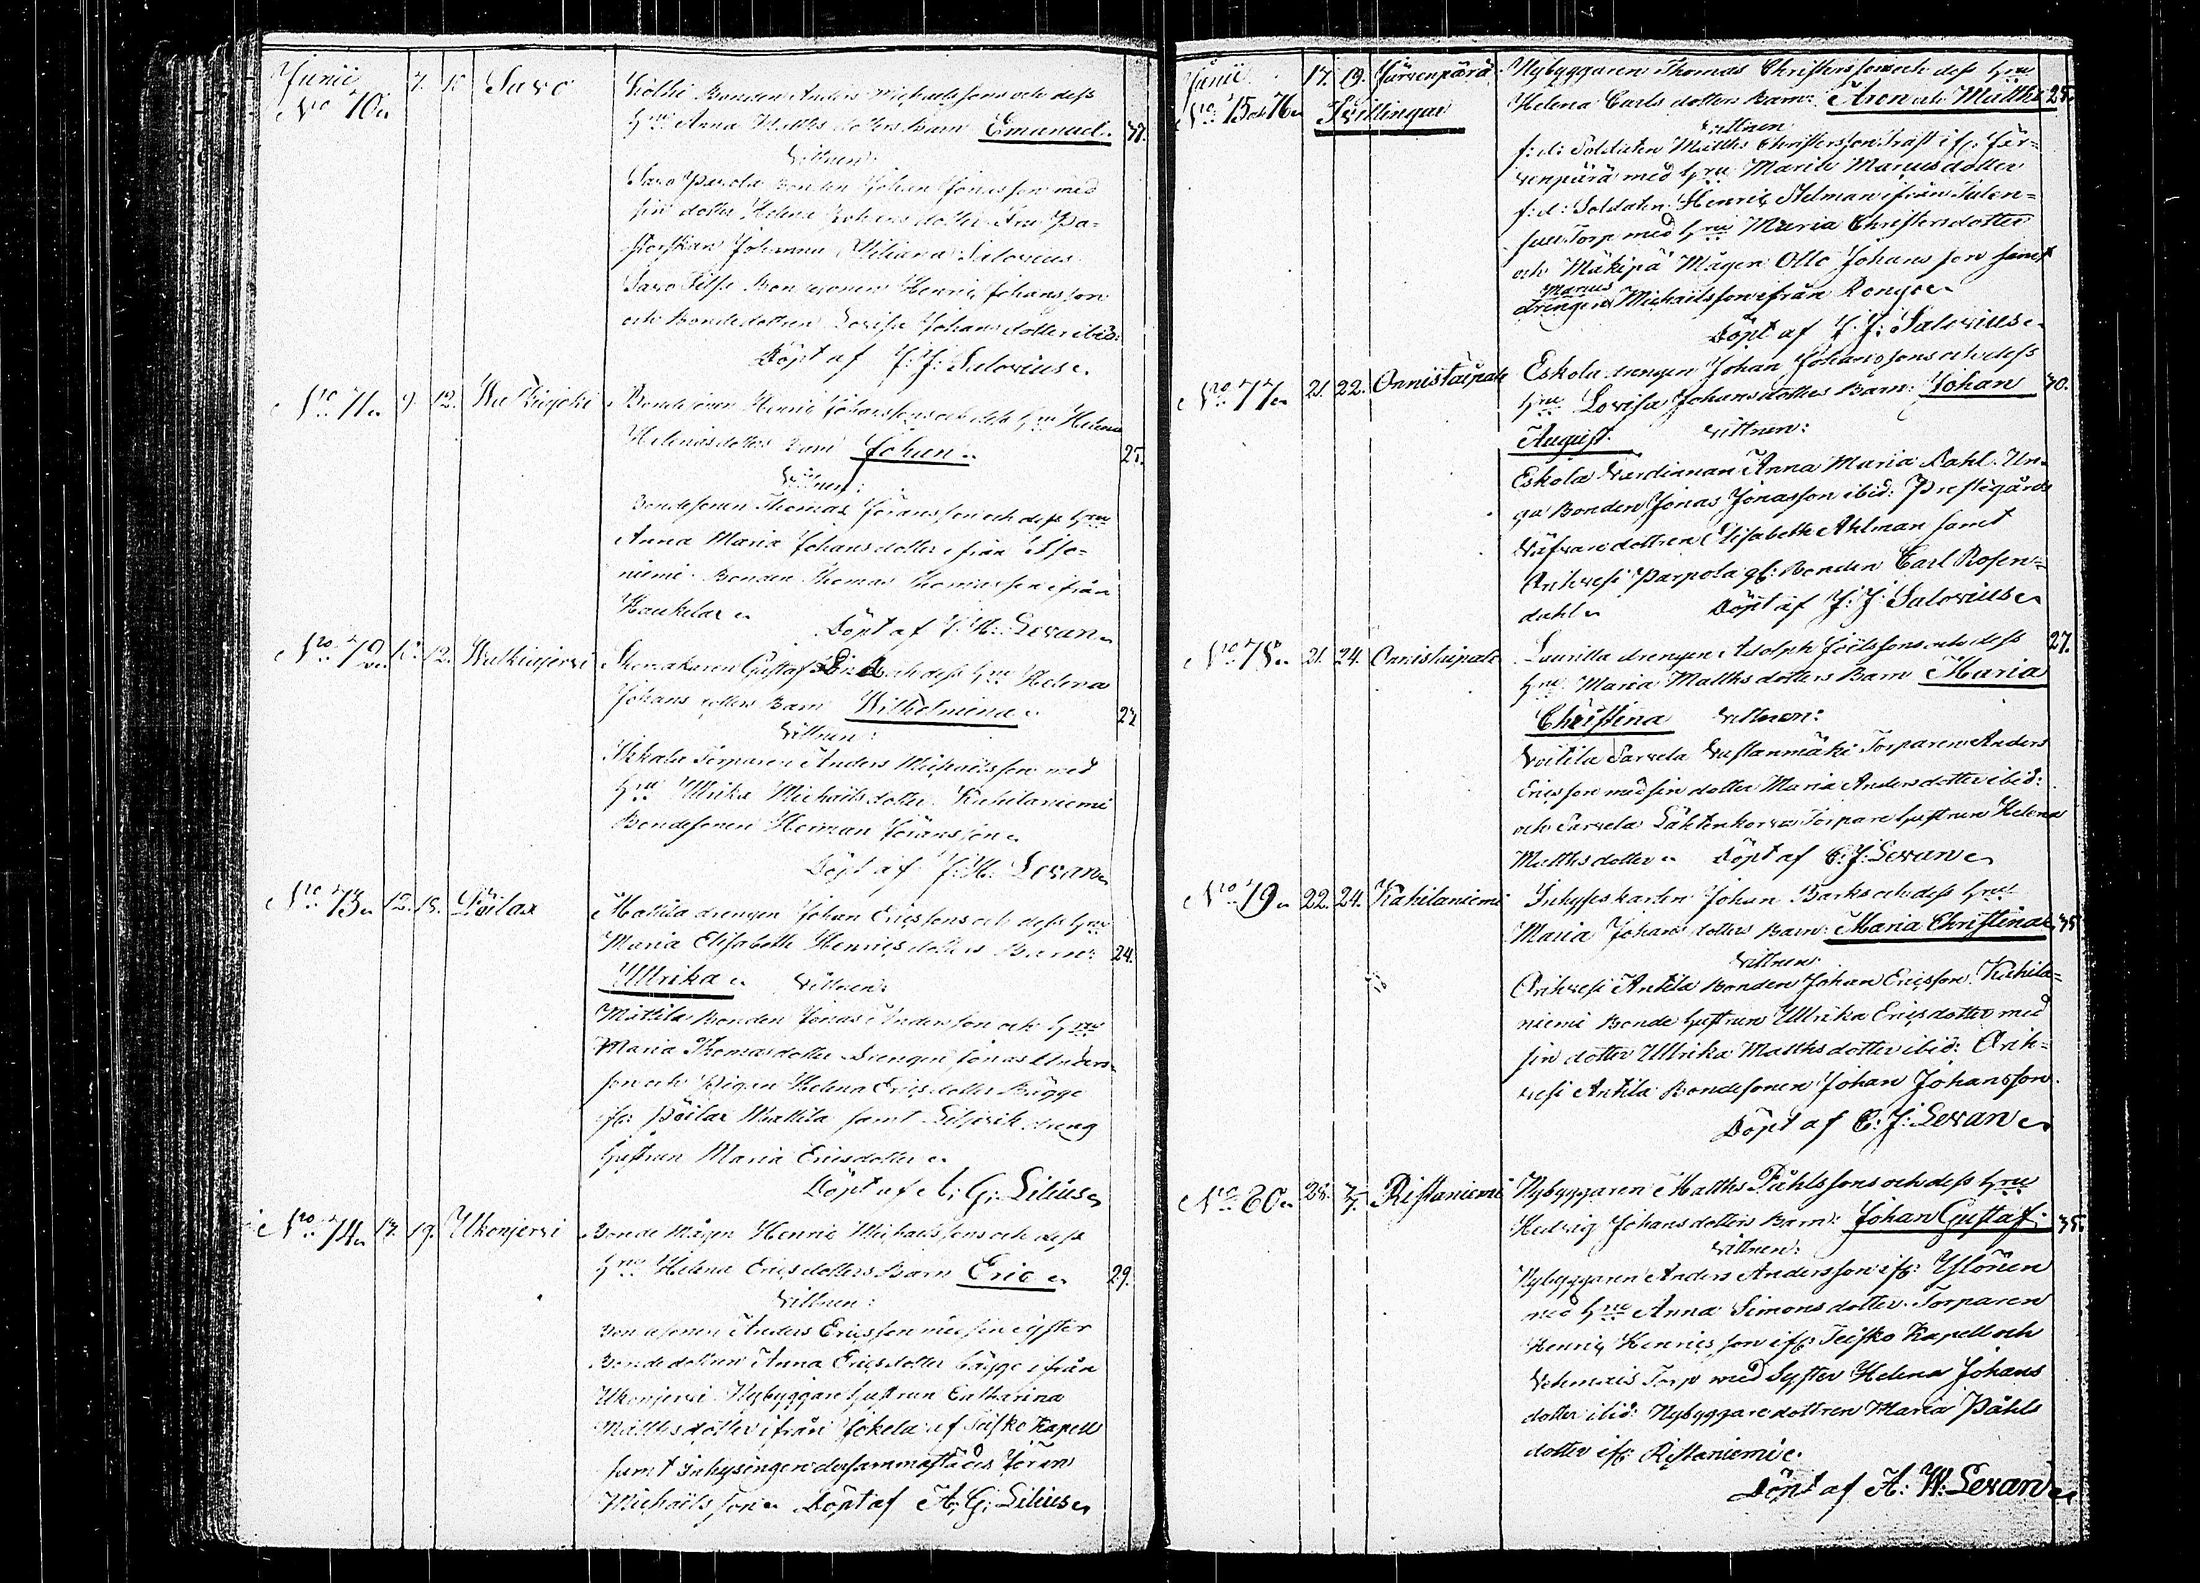 Junii
No 70. 7. Savo Kölhi Bonden Anders Michaelssons och dess
Hru Anna Matths dotters barn Emanuel. 37.
Vittnen:
Savo Yrola Bonden Johan Jonasson med
sin dotter Helena Johans dotter. Fru Pa-
storskan Johanna Salovius
Savo Bondesonen Henric Johansson
och Bondedottren Lovisa Johans dotter ibid:
Döpt af J: J: Salovius
No 71 9. 12. Bondesonen Henric Johanssons och dess Hru Helena
dotters barn Johan 25.
Vittnen:
Bondesonen Thomas Göransson och dess Hru
Anna Maria Johans dotter ifrån
niemi. Bonden Thomas Thomasson ifrån
Haukilax Döpt af J. H: Levan
No 72 12. Walkiajervi Skomakaren Gustaf och dess Hru Helena
Johans dotters Barn Wilhelmina 27
Vittnen:
Torparen Anders Michaelsson med
Hru Ullrika Michaels dotter. Kahilaniemi
Bondesonen Herman Göransson
Döpt af J: H: Levan
No 73 12. 15. Pöilax Mattila drengen Johan Ericssons och dess Hru
Maria Elisabeth Henrics dotters Barn: 24.
Ullrika Vittnen:
Mattila Bonden Jonas Andersson och Hru
Maria Thomasdotter. Drengen Jonas Anders-
son och Pigan Helena Ericsdotter Bägge
ifr: Pöilax Mattila samt dreng
hustrun Maria Ericsdotter
Döpt af A: G: Lilius
No 74 17. 19. Ukonjervi Bonde Mågen Henric Michaelssons och dess
Hru Helena Ericsdotters Barn Eric 29.
Vittnen:
Bondesonen Anders Ericsson med sin syster
Bondedottren Anna Ericsdotter bägge ifrån
Ukonjervi. Nybyggare hustrun Catharina
Matthsdotter ifrån Jokela af Teisko Kapell
samt Inhysingen dersammastädes Göran
Michaelsson Döpt af A: G: Lilius
Junii 17. 19. Järvenpärä Nybyggaren Thomas Christerssons och dess Hru
No 75 och 76 Tvillingar Helena Carls dotters Barn: Aron och Matths 25.
Vittnen
f: d: Soldaten Matths Christersson Trast ifr: Jär-
venpärä med Hru Maria Mariusdotter
f: d: Soldaten Henric Ahlman ifrån
Torp med Hru Maria Christersdotter
och Mäkipä Mågen Otto Johansson samt
Marius
drengen Michaelsson ifrån
Döpt af J: J: Salovius
No 77 21. 22. Onnistaipale Eskola drengen Johan Johanssons och dess
Hru Lovisa Johansdotters Barn: Johan 30.
August Vittnen:
Eskola Värdinnan Anna Maria Dahl. Un-
ga Bonden Jonas Jonasson ibid: Prestgårds
dottren Elisabeth Ahlman samt
Arikvesi Parpola gl: Bonden Carl Rosen-
dahl Döpt af J: J: Salovius
No 78 21. 24. Onnistaipale Laurilla drengen Adolph Joëlssons och dess 27.
Hru Maria Matthsdotters Barn Maria
Christina Vittnen:
Voitila Sarvela Torparen Anders
Ericsson med sin dotter Maria Andersdotter ibid:
och Sarvela Torpare hustrun Helena
Matthsdotter Döpt af C: J: Levan
No 79 22. 24. Kahilaniemi Inhyses karlen Johan Barks och dess Hru
Maria Johans dotters Barn: Maria Christina 35
Vittnen:
Arikvesi Antila Bonden Johan Ericsson. Kahila-
niemi Bonde hustrun Ullrika Ericsdotter med
sin dotter Ullrika Matthsdotter ibid: Arik-
vesi Antila Bondesonen Johan Johansson.
Döpt af C: J: Levan
No 80 Ristaniemi Nybyggaren Matths Påhlssons och dess Hru
Hedvig Johansdotters Barn: Johan Gustaf. 35.
Vittnen:
Nybyggaren Anders Andersson ifr: Ylönen
med Hru Anna Simonsdotter. Torparen
Henric Henricsson ifr: Teisko Kapell och
Torp med Syster Helena Johans
dotter ibid: Nybyggare dottren Maria Påhls
dotter ifr: Ristaniemi.
Döpt af A: W: Levan